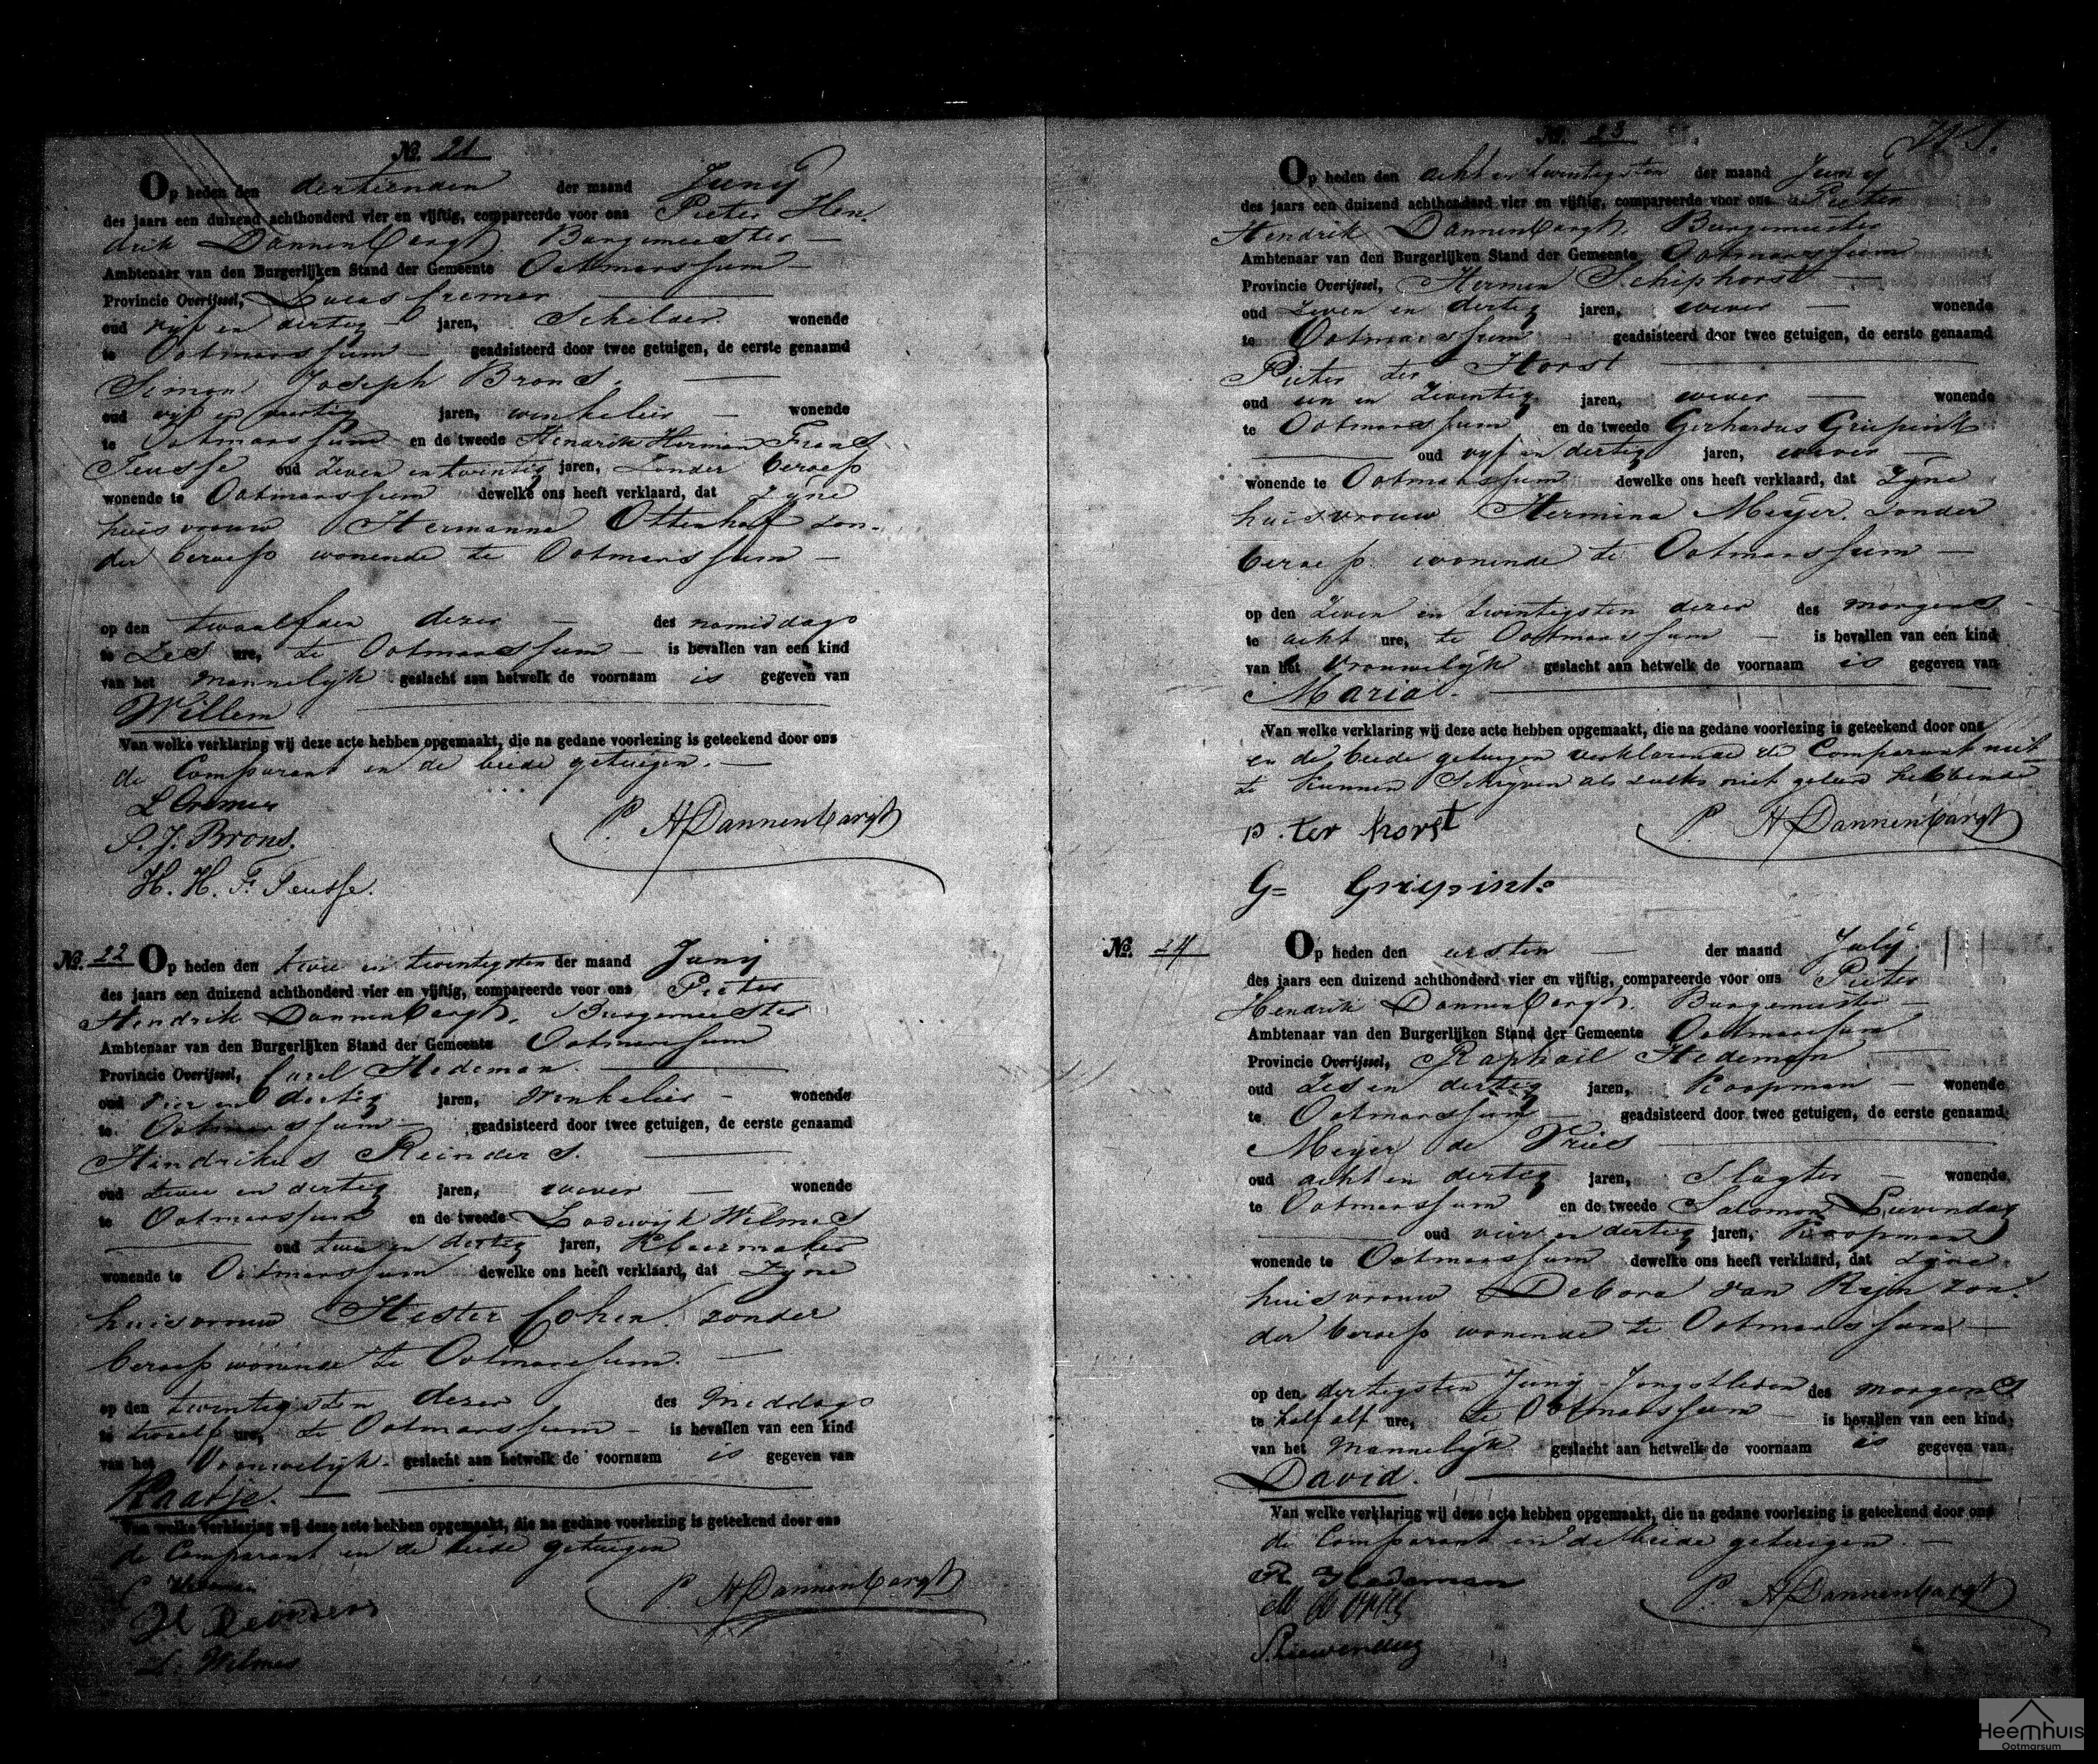 No. 21
Op heden den dertienden der maand Junij
des jaars een duizend achthonderd vier en vijftig, compareerde voor ons Pieter Hen-
drik Dannenbargh, Burgemeester
Ambtenaar van den Burgerlijken Stand der Gemeente Ootmarssum
Provincie Overijssel, Lucas Cremer
oud vijf en dertig jaren, Schilder wonende
te Ootmarssum geadsisteerd door twee getuigen, de eerste genaamd
Simon Joseph Brons
oud vijf en veertig jaren, winkelier wonende
te Ootmarssum en de tweede Hendrik Herman Frans
Teusse oud zeven en twintig jaren, zonder beroep
wonende te Ootmarssum dewelke ons heeft verklaard, dat zijne
huisvrouw Hermanna Ottenhof zon-
der beroep wonende te Ootmarssum
op den twaalfden dezer des namiddags
te zes ure, te Ootmarssum is bevallen van een kind
van het Mannelijk geslacht aan hetwelk de voornaam is gegeven van
Willem
Van welke verklaring wij deze acte hebben opgemaakt, die na gedane voorlezing is geteekend door ons
de Comparant en de beide getuigen.
L Cremer
P. H Dannenbargh
S. J. Brons.
H. H. F. Teusse.
No. 22 Op heden den twee en twintigsten der maand Junij
des jaars een duizend achthonderd vier en vijftig, compareerde voor ons Pieter
Hendrik Dannenbargh, Burgemeester
Ambtenaar van den Burgerlijken Stand der Gemeente Ootmarssum
Provincie Overijssel, Carel Hedeman
oud vier en dertig jaren, Winkelier wonende
te Ootmarssum geadsisteerd door twee getuigen, de eerste genaamd
Hindrikus Reinders
oud twee en dertig jaren, wever wonende
te Ootmarssum en de tweede Lodewijk Wilmes
oud twee en dertig jaren, Kleermaker
wonende te Ootmarssum dewelke ons heeft verklaard, dat zijne
huisvrouw Hester Cohen zonder
beroep wonende te Ootmarssum.
op den twintigsten dezer des Middags
te twaalf ure, te Ootmarssum is bevallen van een kind
van het Vrouwelijk geslacht aan hetwelk de voornaam is gegeven van
Kaatje.
Van welke verklaring wij deze acte hebben opgemaakt, die na gedane voorlezing is geteekend door ons
de Comparant en de beide getuigen
P. H Dannenbargh
H Reinders
L. Wilmes
No. 23
Op heden den acht en twintigsten der maand Junij
des jaars een duizend achthonderd vier en vijftig, compareerde voor ons Pieter
Hendrik Dannenbargh, Burgemeester
Ambtenaar van den Burgerlijken Stand der Gemeente Ootmarssum
Provincie Overijssel, Hermen Schiphorst
oud zeven en dertig jaren, wever wonende
te Ootmarssum geadsisteerd door twee getuigen, de eerste genaamd
Pieter ter Horst
oud een en zeventig jaren, wever wonende
te Ootmarssum en de tweede Gerhardus Griepink
oud vijf en dertig jaren, wever
wonende te Ootmarssum dewelke ons heeft verklaard, dat zijne
huisvrouw Hermina Meijer zonder
beroep wonende te Ootmarssum
op den zeven en twintigsten dezer des morgens
te acht ure, te Ootmarssum is bevallen van een kind
van het Vrouwelijk geslacht aan hetwelk de voornaam is gegeven van
Maria.
Van welke verklaring wij deze acte hebben opgemaakt, die na gedane voorlezing is geteekend door ons
en de beide getuigen verklarende de Comparant niet
te kunnen Schrijven als zulks niet geleerd hebbende
P. H Dannenbargh
p. ter horst
G= Griepink
No. 24 Op heden den eersten der maand Julij
des jaars een duizend achthonderd vier en vijftig, compareerde voor ons Pieter
Hendrik Dannenbargh, Burgemeester
Ambtenaar van den Burgerlijken Stand der Gemeente Ootmarssum
Provincie Overijssel, Raphaël Hedeman
oud zes en dertig jaren, Koopman wonende
te Ootmarssum geadsisteerd door twee getuigen, de eerste genaamd
Meijer de Vries
oud acht en dertig jaren, Slagter wonende
te Ootmarssum en de tweede Salomon Lievendag
oud vier en dertig jaren, Koopman
wonende te Ootmarssum dewelke ons heeft verklaard, dat zijne
huisvrouw Debora van Rijn zon-
der beroep wonende te Ootmarssum
op den dertigsten Junij Jongstleden des morgens
te half elf ure, te Ootmarssum is bevallen van een kind
van het Mannelijk geslacht aan hetwelk de voornaam is gegeven van
David.
Van welke verklaring wij deze acte hebben opgemaakt, die na gedane voorlezing is geteekend door ons
de Comparant en de beide getuigen.
R Hedeman
P. H Dannenbargh
Heemhuis
Ootmarsum